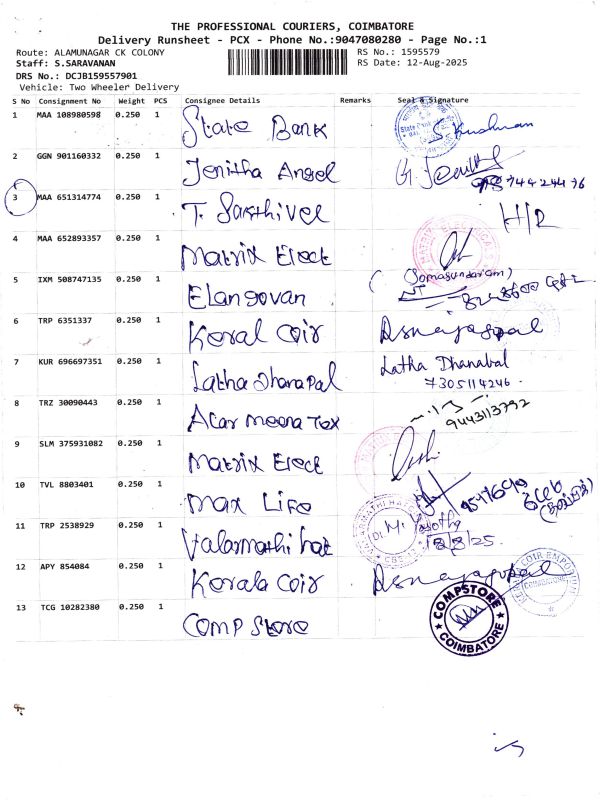 THE PROFESSIONAL COURIERS, COIMBATORE
Delivery Runsheet - PCX - Phone No.:9047080280 - Page No.:1
Route: ALAMUNAGAR CK COLONY
RS No.: 1595579
Staff: S.SARAVANAN
RS Date: 12-Aug-2025
DRS No.: DCJB159557901
Vehicle: Two Wheeler Delivery
S No Consignment No Weight PCS Consignee Details Remarks Seal & Signature
1 MAA 108980598 0.250 1 State Bank
2 GGN 901160332 0.250 1 Jenitha Angel
3 MAA 651314774 0.250 1 T. Sakthivel
4 MAA 652893357 0.250 1 Matrix Elect
(Somasundaram)
5 IXM 508747135 0.250 1 Elangovan
6 TRP 6351337 0.250 1 Keral Coir
7 KUR 696697351 0.250 1 Latha Dhanapal Latha Dhanabal
7305114246
8 TRZ 30090443 0.250 1 Alar meena Tex 9443113792
9 SLM 375931082 0.250 1 Matrix Elect
10 TVL 8803401 0.250 1 Max Life
11 TRP 2538929 0.250 1 Valarmathi
12 APY 854084 0.250 1 Kerala Coir
KERALA COIR EMPORIUM
COIMBATORE
13 TCG 10282380 0.250 1 Comp Store
COMPSTORE
COIMBATORE